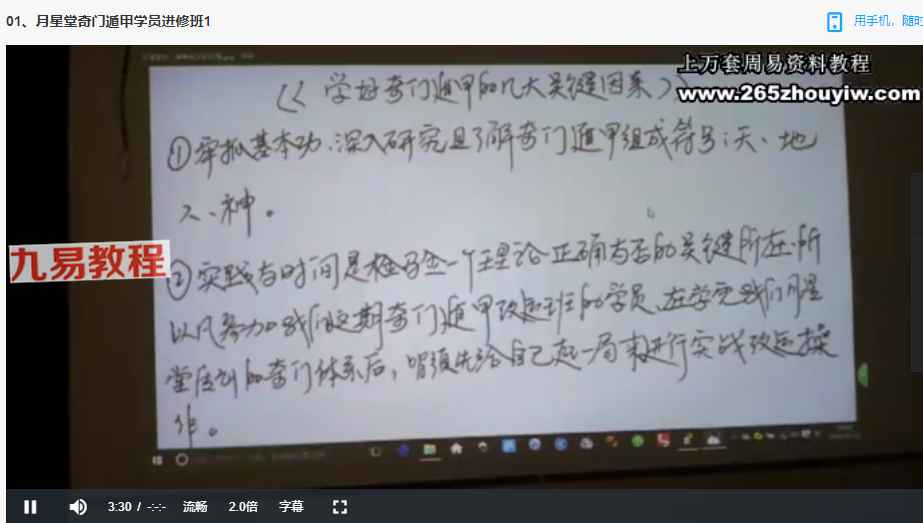 01、月星堂奇门遁甲学员进修班1
用手机，随时
上万套周易资料教程
www.265zhouyiw.com
《学好奇门遁甲的几大关键因素》
①牢抓基本功、深入研究且了解奇门遁甲组成符号:天、地
人、神。
九易教程
②实践与时间是检验一个理论正确与否的关键所在、所
以凡参加我们这期奇门遁甲改运班的学员、在学完我们月星
堂 的奇门体系后，皆须先给自己起一局来进行实战改运操
作。
3:30 / -:-:-
流畅
2.0倍
字幕